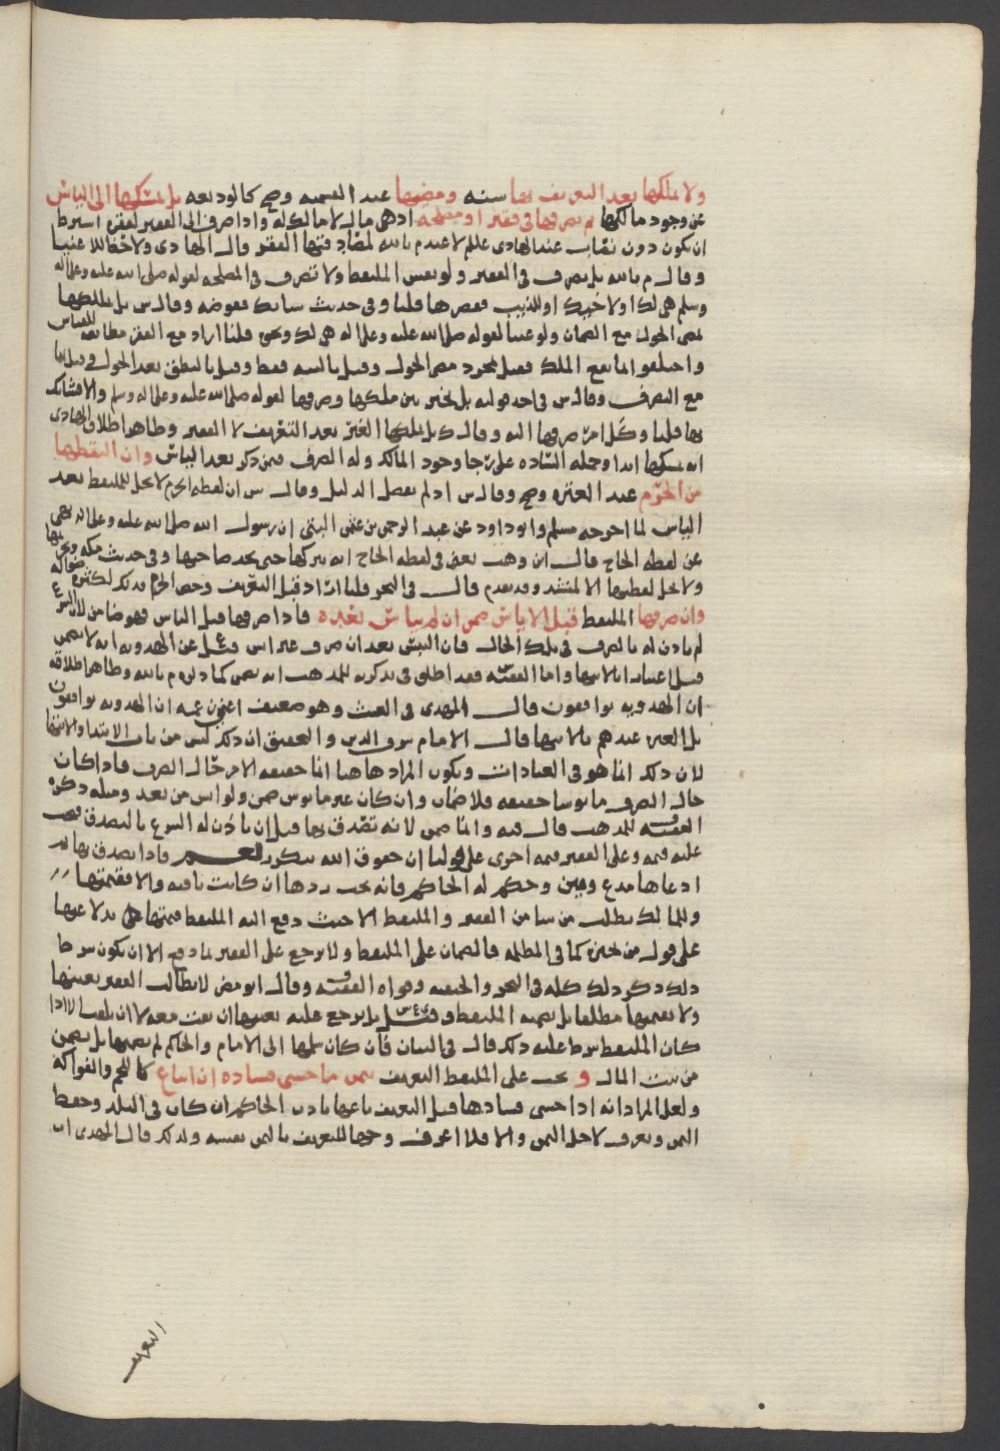 ولا يملكها بعد التعريف بها سنه ومضيها عند القسميه وصح كالوديعه بل يمسكها الى الياس
عن وجود مالكها ثم يصرفها في فقير او مصلحه اذ هي مال لا مالك له واذا صرف الى الفقير لفقره اشترط
ان يكون دون نصاب عند الهادي عللم لا عند م بالله لمصادفتها الفقر وقال الهادي ولا حظ للاغنيا
وقال م بالله بل يصرف في الفقير ولو نفس الملتقط ولا تصرف في المصلحه لقوله صلى الله عليه وعلى اله
وسلم هي لك او لاخيك او للذيب فقصرها قلنا وفي حديث سابك مفوضه وقال س بل يملكها
بمضي الحول مع الضمان ولو غنيا لقوله صلى الله عليه وعلى اله هي لك ونحوه قلنا اراد مع الفقر مطابقه للقياس
واختلفوا بما يقع الملك فقيل بمجرد مضي الحول وقيل بالنيه فقط وقيل بالنطق بعد الحول وقيل بها
مع التصرف وقال س في احد قوليه بل يخير بين ملكها وصرفها لقوله صلى الله عليه وعلى اله وسلم والا فشانك
بها قلنا وكل امر صرفها اليه وقال ك بل يملكها الغني بعد التعريف لا الفقير وظاهر اطلاق الهادي
انه يمسكها ابدا وحمله الساده على رجا وجود المالك وله الصرف فيمن ذكر بعد الياس وان التقطها
من الحرم عند العتره وصح وقال س اذ لم يفصل الدليل وقال س ان لقطه الحرم لا تحل للملتقط بعد
الياس لما اخرجه مسلم وابو داود عن عبد الرحمن بن عثمن التيمي ان رسول الله صلى الله عليه وعلى اله نهى
عن لقطه الحاج قال ابن وهب يعني في لقطه الحاج انه يتركها حتى يجد صاحبها وفي حديث مكه
ولا تحل لقطتها الا لمنشد وقد تقدم قال في البحر قلنا اراد قبل التعريف وخص الحرم بذلك لكثره ضواله
وان صرفها الملتقط قبل الاياس ضمن ان لم يياس بغيره فاذا صرفها قبل الياس فهو ضامن لان الشرع
لم ياذن له بالصرف في تلك الحال فان التبس بعد ان صرف عن اس فقيل عن الهدويه انه لا يضمن
قيل اعتبارا بالانتها واما الفقيه س فقد اطلق في تذكرته للمذهب انه يضمن كما ذكره م بالله وظاهر اطلاقه
ان الهدويه يوافقون قال المهدي في الغيث وهو ضعيف اعني ان الهدويه يوافقون
بل العبره عندهم بالانتها قال الامام شرف الدين والتحقيق ان ذلك ليس من باب الابتدا والانتها
لان ذلك انما هو في العبادات ويكون المراد هاهنا انما حقيقه الامر حال الصرف فاذا كان
حال الصرف مايوسا حقيقه فلا ضمان وان كان غير مايوس ضمن ولو ايس من بعد ومثله ذكره
الفقيه للمذهب قال فيه وانما ضمن لانه تصدق بها قبل ان ياذن له الشرع بالتصدق فيجب
عليه قيمه وعلى الفقير قيمه اخرى على قولنا ان حقوق الله تتكرر فاذا تصدق بها ثم
ادعاها مدع وبين وحكم له الحاكم فانه يجب ردها ان كانت باقيه والا فقيمتها
وللمالك مطالبه من شا من الفقير والملتقط الا حيث دفع اليه الملتقط قيمتها بدلا عنها
على قول من يخيره كما في المظلمه فالضمان على الملتقط ولا يرجع على الفقير بما دفع الا ان يكون شرط
ذلك ذكر ذلك كله في البحر والحنفيه وقواه الفقيه وقال ابو مضر لا يطالب الفقير بعينها
ولا بقيمتها مطلقا بل يضمنه الملتقط وقيل س بل يرجع عليه بعينها ان بقيت معه لا ان تلفت الا اذا
كان الملتقط شرط عليه ذلك قال في البيان فان كان سلمها الى الامام والحاكم لم يضمنها بل يضمن
من بيت المال و يجب على الملتقط التعريف بثمن ما خشي فساده ان ابتاع كاللحم والفواكه
ولعل المراد انه اذا خشي فسادها قبل التعريف باعها باذن الحاكم ان كان في البلد وحفظ
الثمن ويعرف لاجل الثمن والا فلا اعرف وجها للتعريف بالثمن نفسه ولذلك قال المهدي ان
التعريف